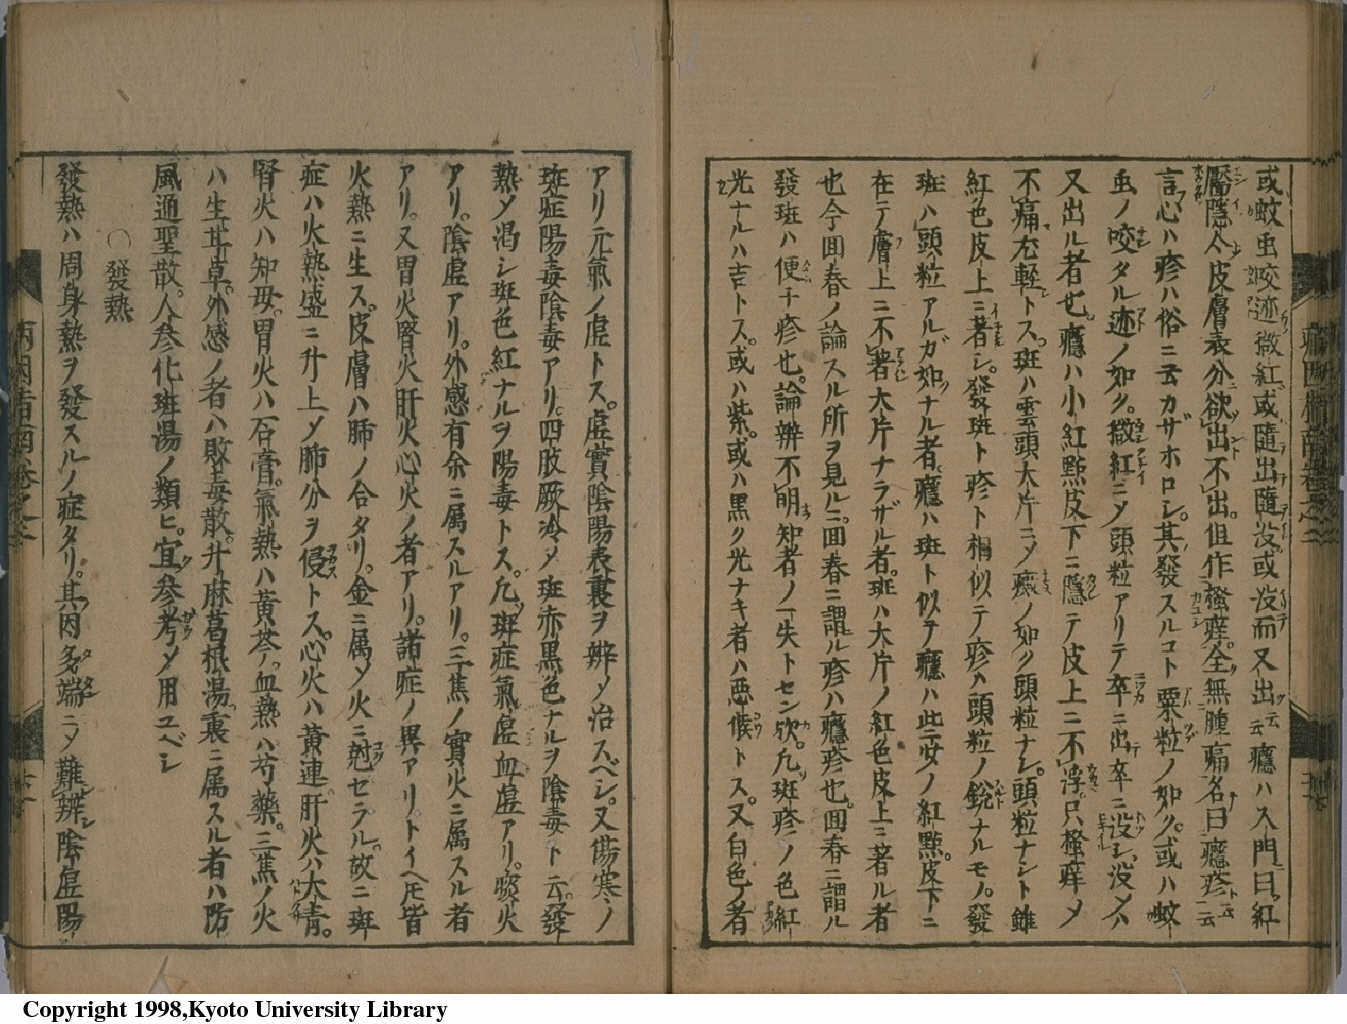 或蚊虫咬迹微紅或隨出隨没或没而又出云云癮ハ入門ニ曰紅
靨隱入皮膚表分欲出不出但作𤸷痒全無腫痛名曰癮疹ト云云
言心ハ疹ハ俗ニ云カザホロシ其發スルコト粟粒ノ如ク或ハ蚊
虫ノ咬タル迹ノ如ク微紅ニメ頭粒アリテ卒ニ出卒ニ没シ没メハ
又出ル者也癮ハ小紅㸃皮下ニ隱テ皮上ニ不浮只𤸷痒メ
不痛尤輕トス斑ハ雲頭大片ニメノ如ク頭粒ナシ頭粒ナシト雖
紅色皮上ニ著シ發斑ト疹ト相似テ疹ハ頭粒ノ鋭ナルモノ發
斑ハ頭粒アルガ如ナル者癮ハ斑ト似テ癮ハ些少ノ紅㸃皮下ニ
在テ膚上ニ不著大片ナラザル者斑ハ大片ノ紅色皮上ニ著ル者
也今回春ノ論スル所ヲ見ルニ回春ニ謂ル疹ハ癮疹也回春ニ謂ル
發斑ハ便チ疹也論辨不明知者ノ一失トセン欤凡斑疹ノ色紅
光ナルハ吉トス或ハ紫或ハ黒ク光ナキ者ハ悪候トス又白色ノ者
アリ元氣ノ虚トス虚實陰陽表裏ヲ辨メ治スベシ又傷寒ノ
斑症陽毒陰毒アリ四肢厥冷メ斑赤黒色ナルヲ陰毒ト云發
熱メ渇シ斑色紅ナルヲ陽毒トス凡斑症氣虚血虚アリ痰火
アリ陰虚アリ外感有余ニ属スルアリ三焦ノ實火ニ属スル者
アリ又胃火腎火肝火心火ノ者アリ諸症ノ異アリトイヘ𪜈皆
火熱ニ生ス皮膚ハ肺ノ合タリ金ニ属メ火ニ尅セラル故ニ斑
症ハ火熱盛ニ升上メ肺分ヲ侵トス心火ハ黄連肝火ハ大青
腎火ハ知母胃火ハ石膏氣熱ハ黄芩血熱ハ芍藥三焦ノ火
ハ生甘草外感ノ者ハ敗毒散升麻葛根湯裏ニ属スル者ハ防
風通聖散人參化斑湯ノ類ヒ宜參考メ用ユベシ
○發熱
發熱ハ周身熱ヲ發スルノ症タリ其因多端ニメ難辨陰虚陽
Copyright 1998,Kyoto University Library